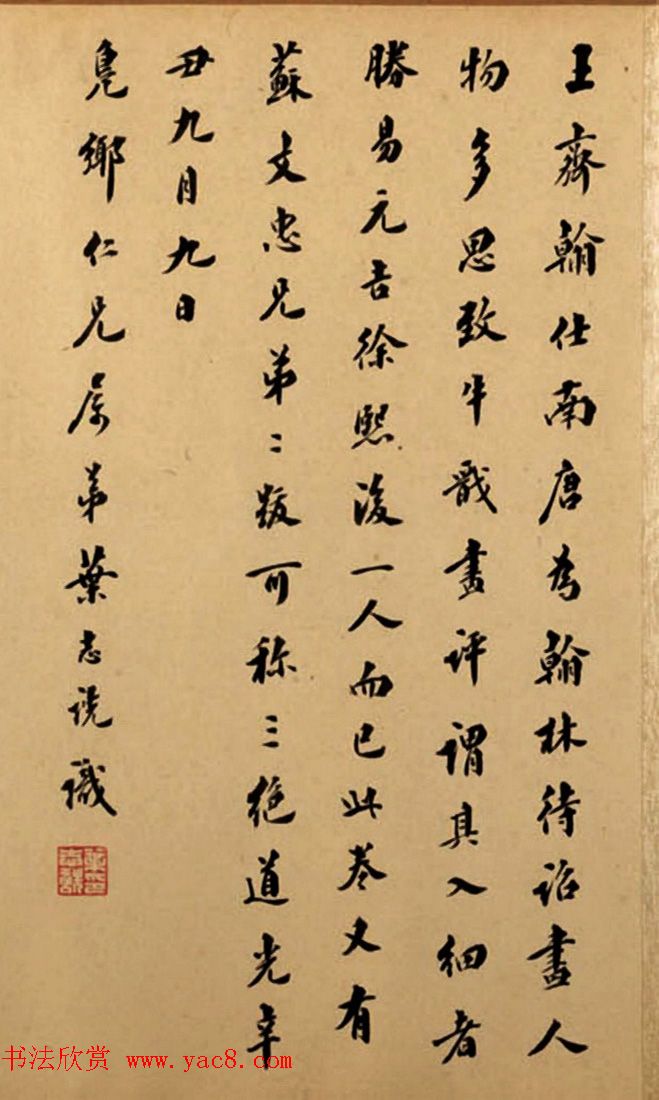 王齊翰仕南唐為翰林待詔畫人
物多思致牛戩畫評謂其入細者
勝易元吉徐熙後一人而已此卷又有
蘇文忠兄弟二跋可称三絶道光辛
丑九月九日
鳧鄉仁兄属弟葉志詵識
书法欣赏 www.yac8.com